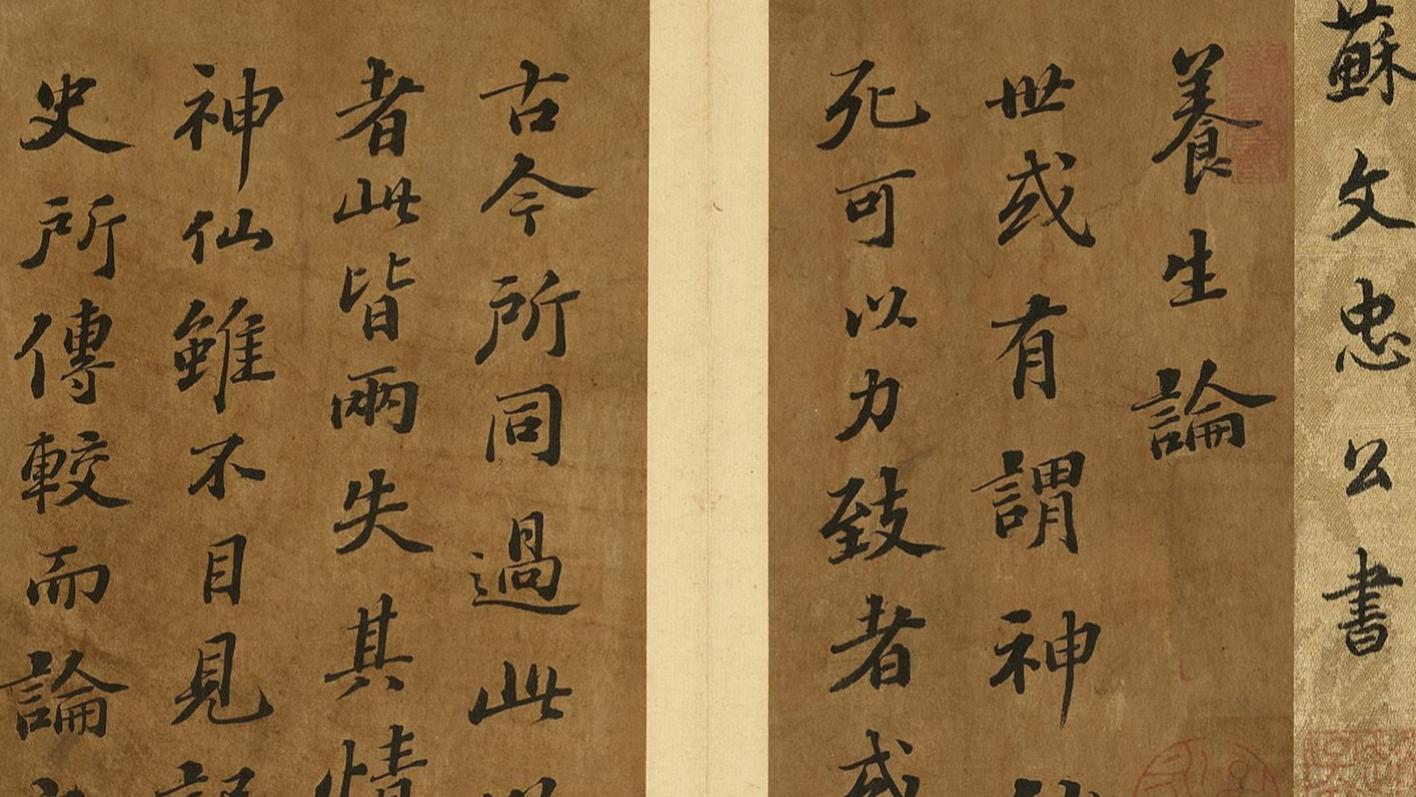 蘇文忠公書
養生論
世或有謂神
死可以力致者或
古今所同過此
者此皆兩失其情
神仙雖不目見
史所傳較而論